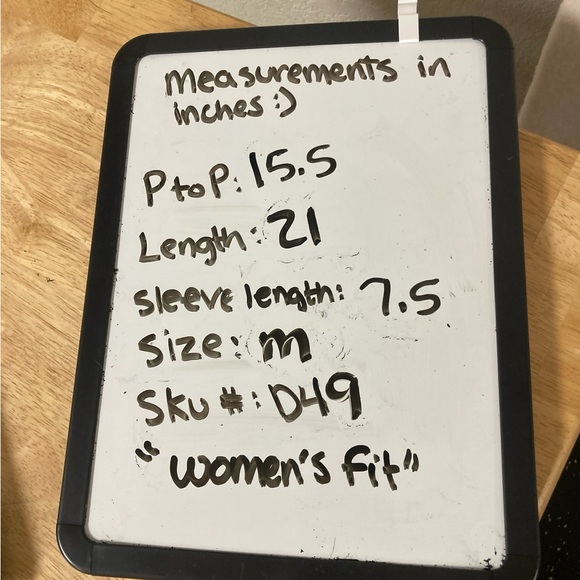 measurements in
inches :)
P to P: 15.5
Length: 21
Sleeve length: 7.5
Size: m
Sku #: D49
"women's fit"